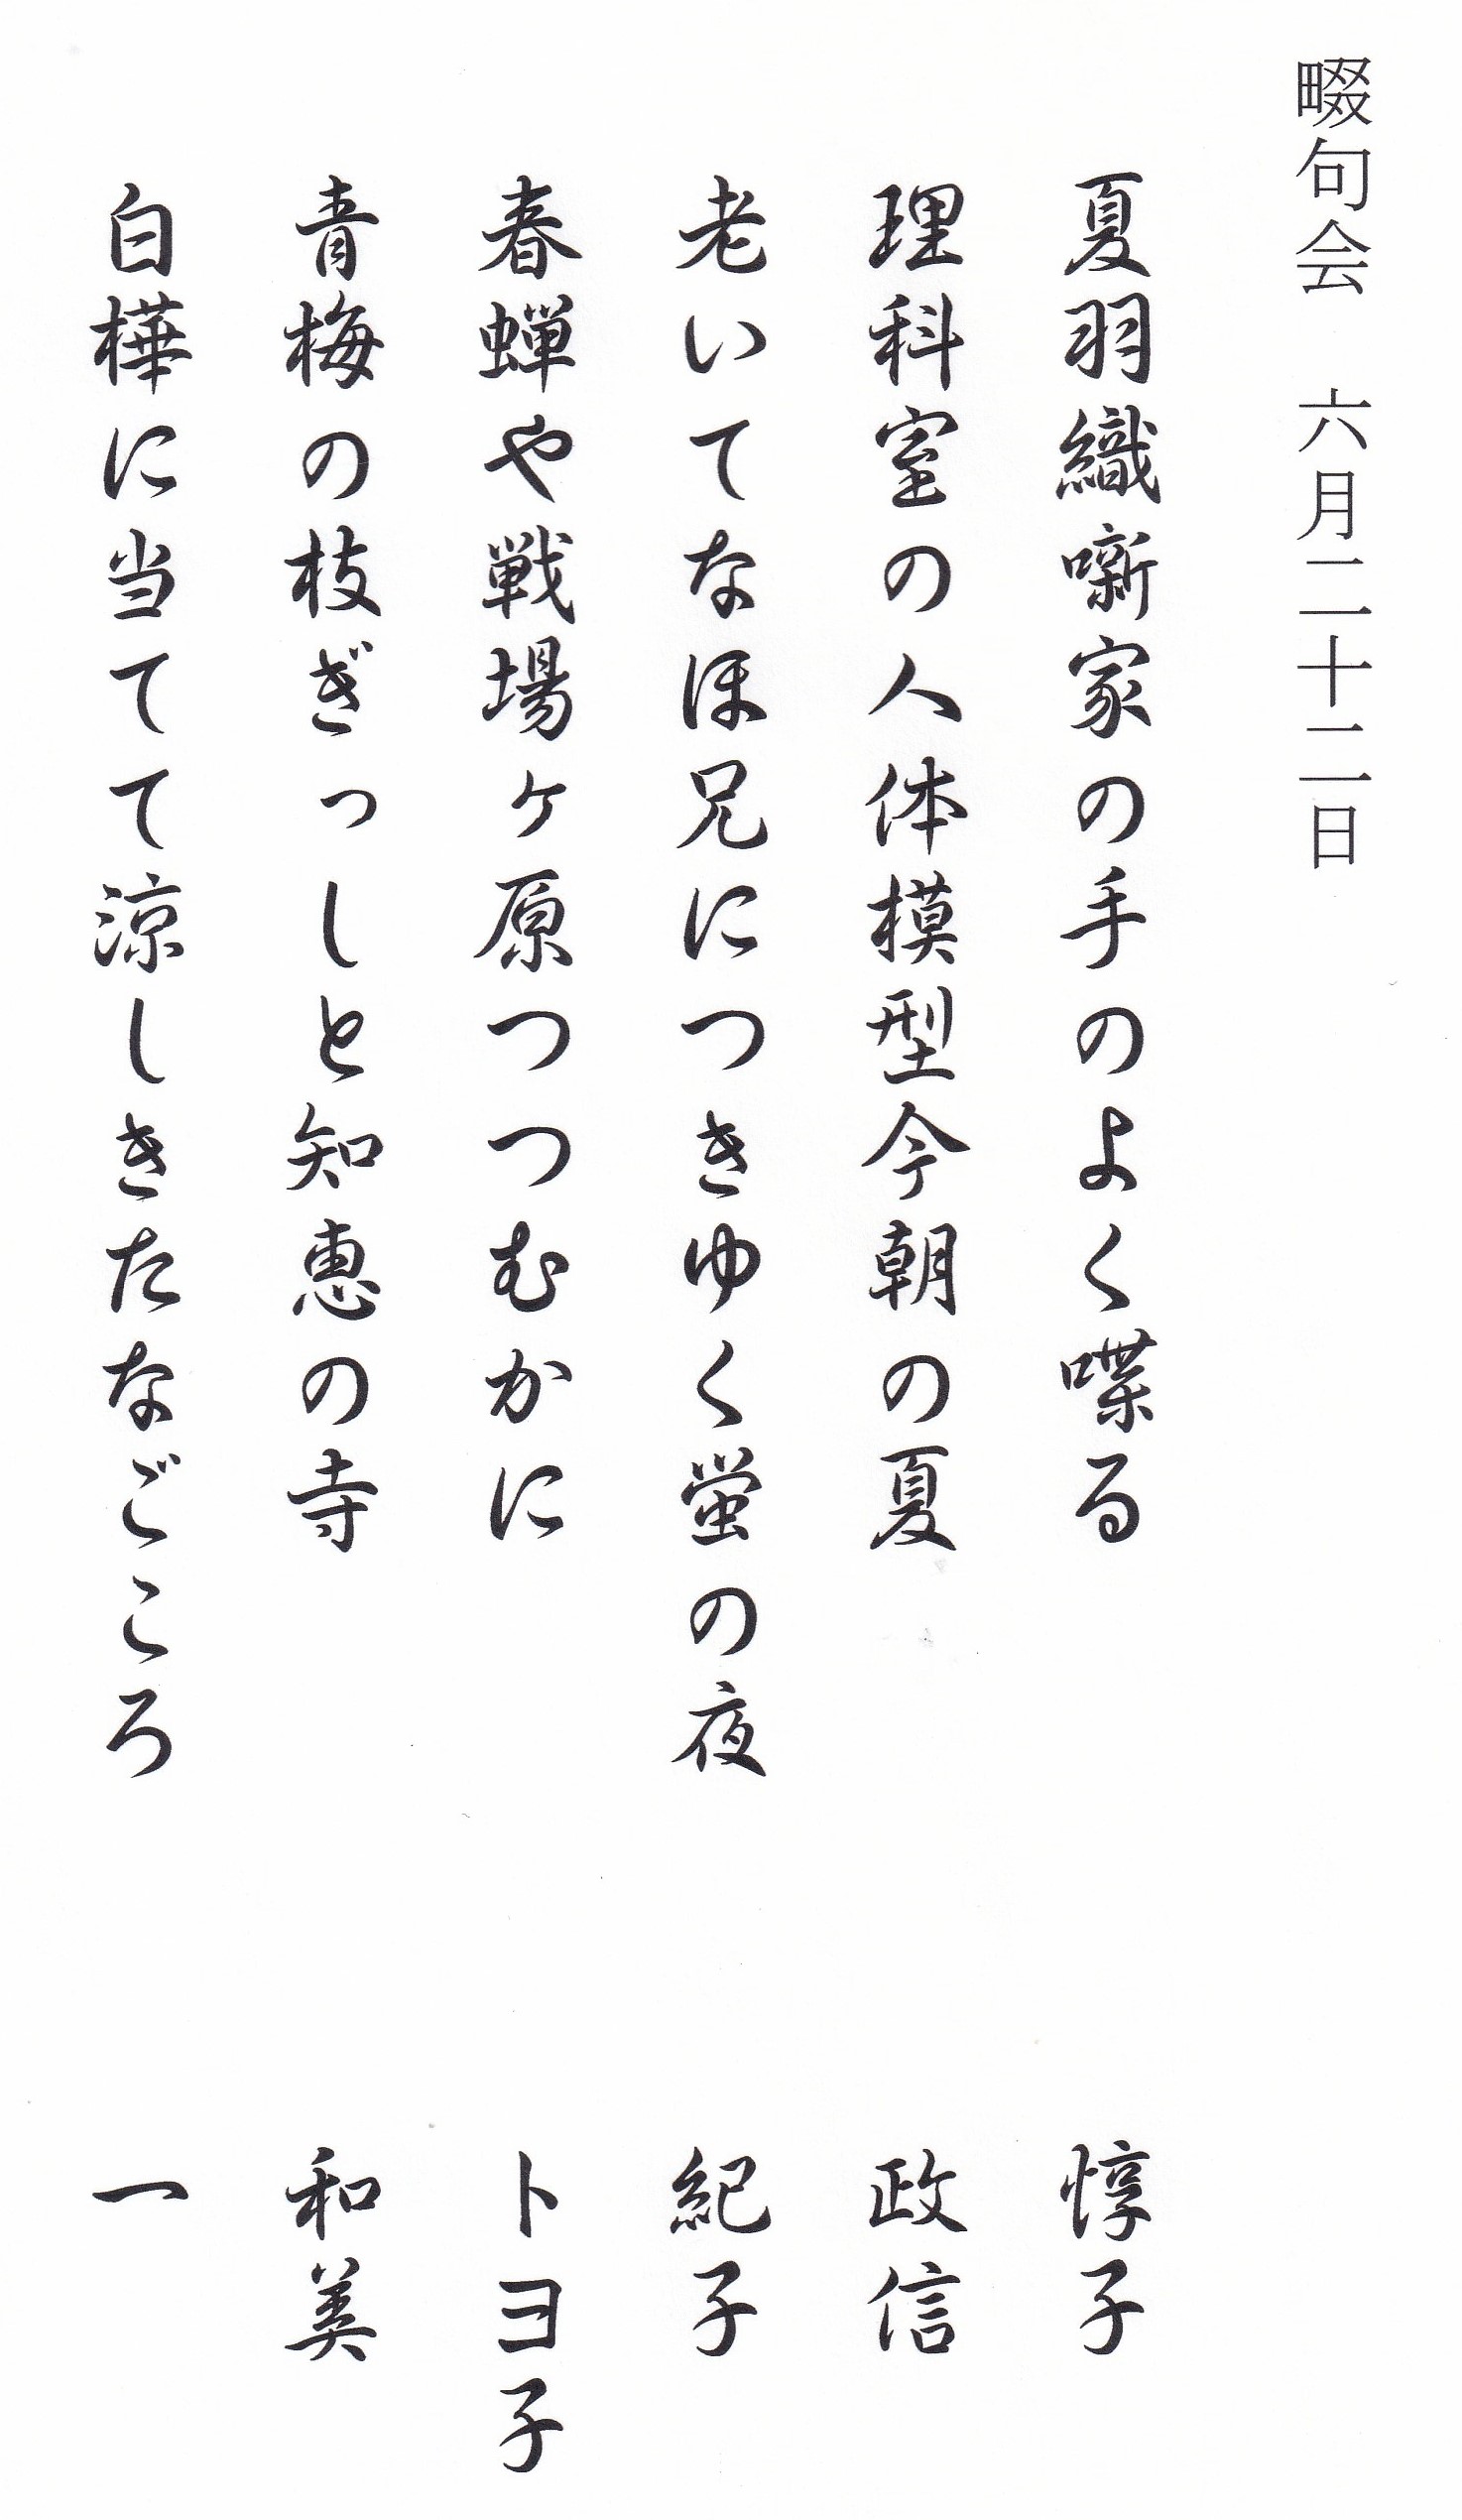 畷句会　六月二十二日
夏羽織噺家の手のよく喋る　惇子
理科室の人体模型今朝の夏　政信
老いてなほ兄につきゆく蛍の夜　紀子
春蝉や戦場ヶ原つつむかに　トヨ子
青梅の枝ぎっしと知恵の寺　和美
白樺に当てて涼しきたなごころ　一